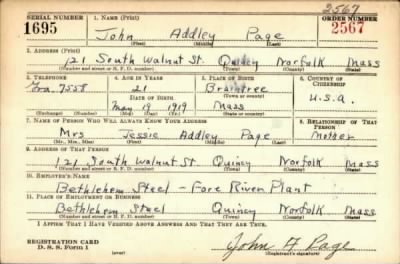 2567
SERIAL NUMBER 1. NAME (Print) ORDER NUMBER
1695 John Addley Page 2567
(First) (Middle) (Last)
2. ADDRESS (Print)
121 South Walnut St. Quincy Norfolk Mass
(Number and street or R. F. D. number) (Town) (County) (State)
3. TELEPHONE 4. AGE IN YEARS 5. PLACE OF BIRTH 6. COUNTRY OF CITIZENSHIP
Gra. 7558 21 Braintree
DATE OF BIRTH (Town or county) U.S.A.
May 19 1919 Mass
(Exchange) (Number) (Mo.) (Day) (Yr.) (State or country)
7. NAME OF PERSON WHO WILL ALWAYS KNOW YOUR ADDRESS 8. RELATIONSHIP OF THAT PERSON
Mrs Jessie Addley Page Mother
(Mr., Mrs., Miss) (First) (Middle) (Last)
9. ADDRESS OF THAT PERSON
121 South Walnut St. Quincy Norfolk Mass
(Number and street or R. F. D. number) (Town) (County) (State)
10. EMPLOYER'S NAME
Bethlehem Steel - Fore River Plant
11. PLACE OF EMPLOYMENT OR BUSINESS
Bethlehem Steel Quincy Norfolk Mass
(Number and street or R. F. D. number) (Town) (County) (State)
I AFFIRM THAT I HAVE VERIFIED ABOVE ANSWERS AND THAT THEY ARE TRUE.
REGISTRATION CARD
D. S. S. Form 1 (over) John A Page
(Registrant's signature)